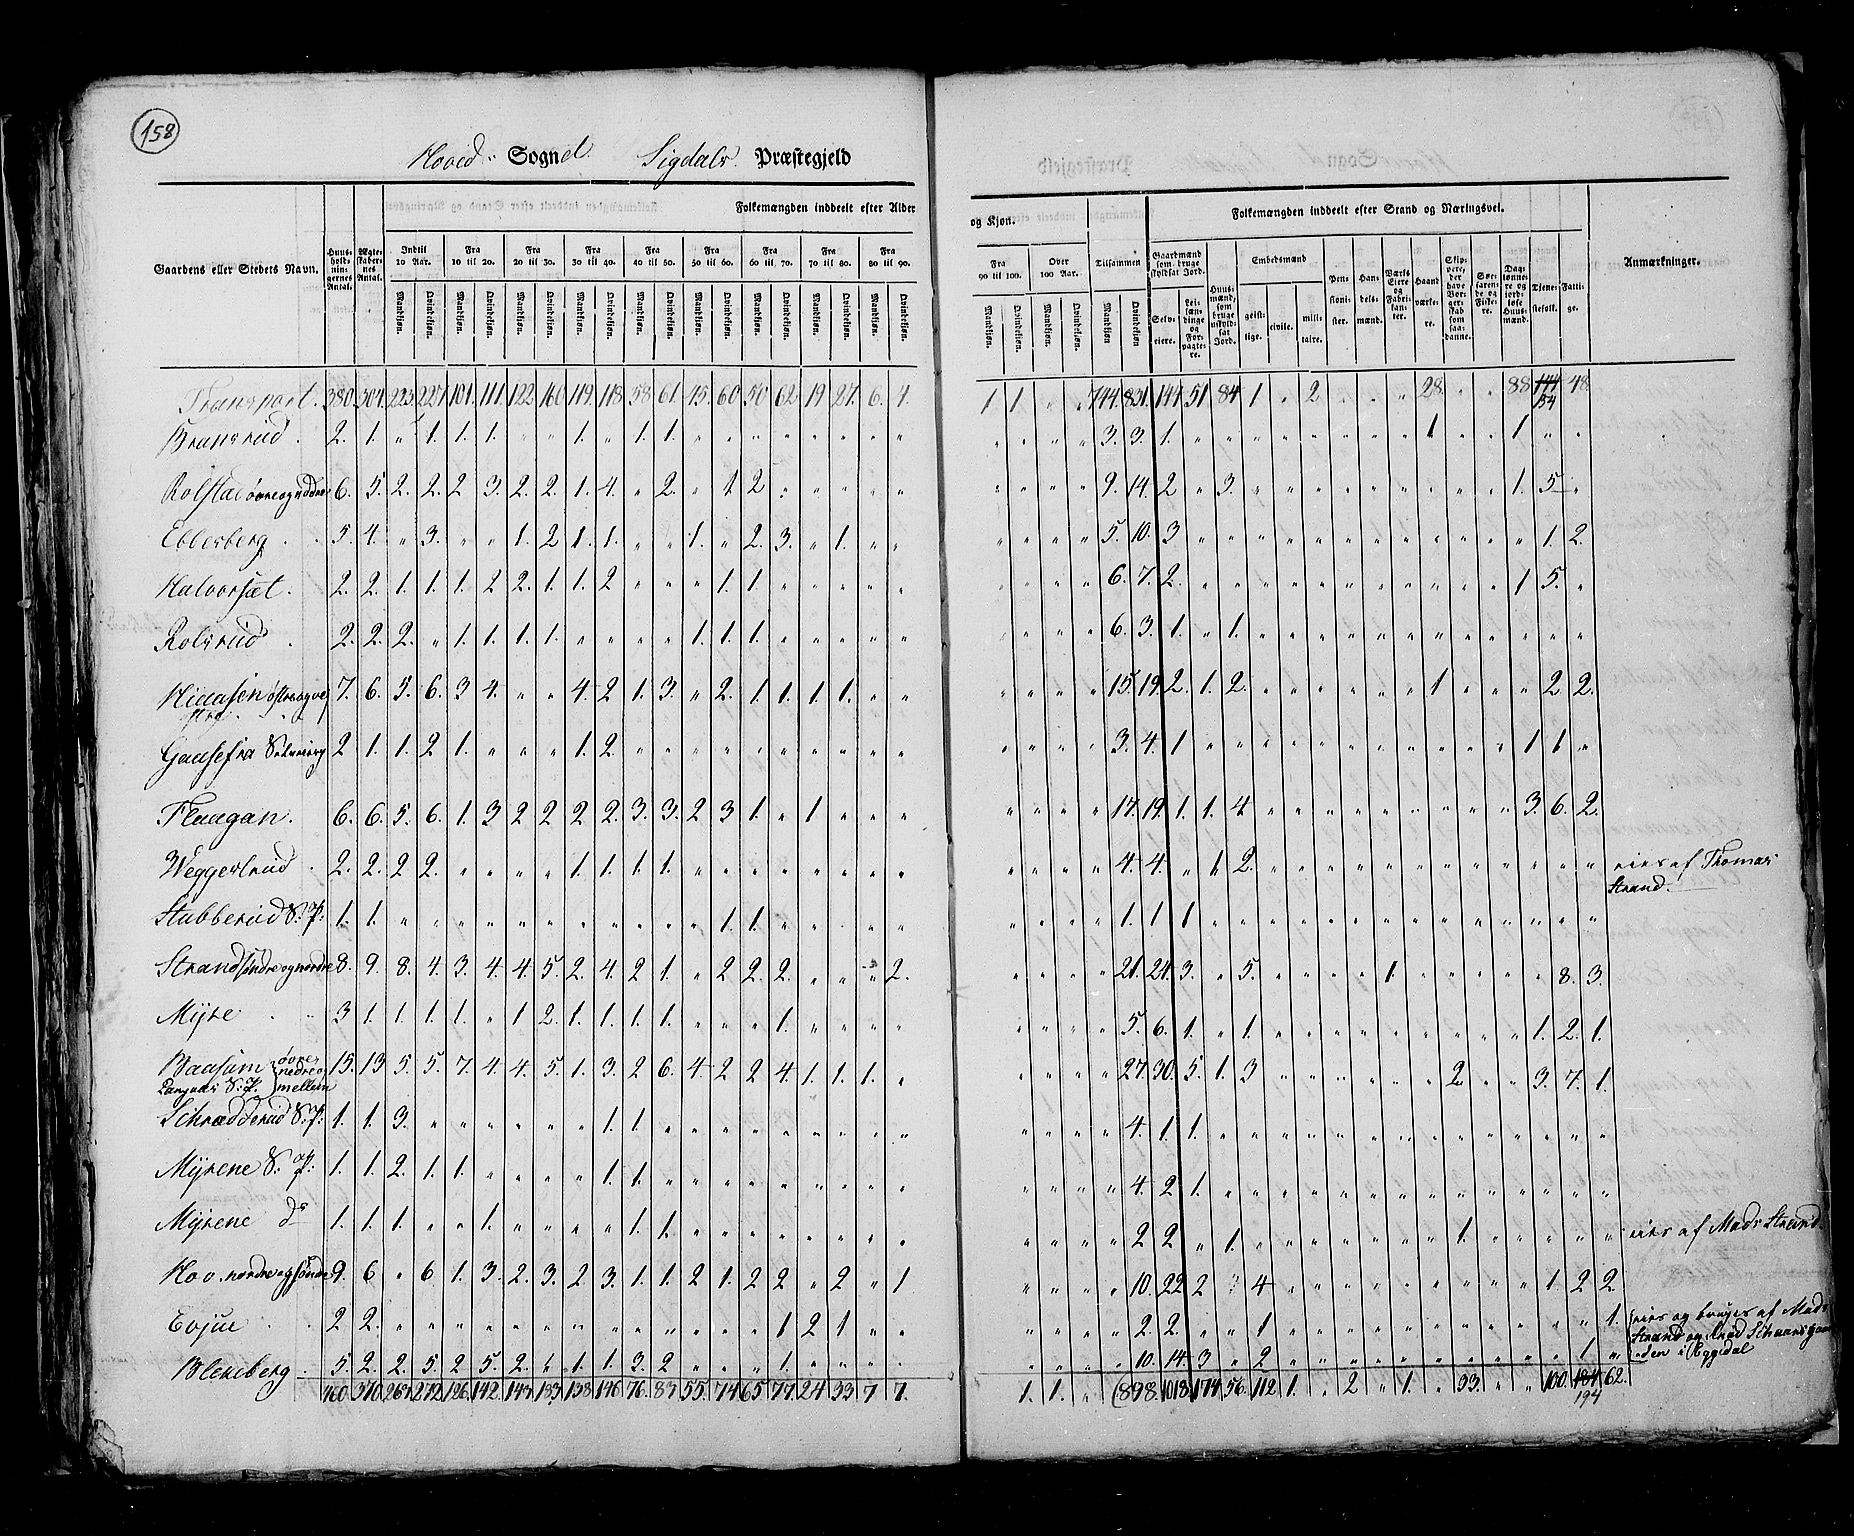 158
Hoved Sognet. Sigdals Præstegjeld
Folkemængden inddeelt efter Alder og Kjøn. Folkemængden inddeelt efter Stand og Næringsvei.
Gaardens eller Stedets Navn. Huusholdningernes Antal. Ægteskabernes Antal. Indtil 10 Aar. Fra 10 til 20. Fra 20 til 30. Fra 30 til 40. Fra 40 til 50. Fra 50 til 60. Fra 60 til 70. Fra 70 til 80. Fra 80 til 90. Fra 90 til 100. Over 100 Aar. Tilsammen Gaardmænd som bruge skyldsat Jord. Huusmænd, som bruge uskyldsat Jord. Embedsmænd Pensionister. Handelsmænd. Værks Eiere og Fabrikanter. Haandværkere. Skippere, der have Borgerskab som saadanne. Søefarende og Fiskere. Daglønnere og jordløse Huusmænd. Tjenestefolk. Fattige. Anmærkninger.
Mandkjøn. Qvindekjøn. Mandkjøn. Qvindekjøn. Mandkjøn. Qvindekjøn. Mandkjøn. Qvindekjøn. Mandkjøn. Qvindekjøn. Mandkjøn. Qvindekjøn. Mandkjøn. Qvindekjøn. Mandkjøn. Qvindekjøn. Mandkjøn. Qvindekjøn. Mandkjøn. Qvindekjøn. Mandkjøn. Qvindekjøn. Mandkjøn Qvindekjøn Selveiere. Leilændinge og Forpagtere. geistlige. civile. militaire.
Transport. 380. 304. 223. 227. 101. 111. 122. 160. 119. 118. 58. 61. 45. 60. 50. 62. 19. 27. 6. 4. 1 1 " " 744. 831. 144. 51. 84. 1 " 2 " " " 28. " " 88 144 154 48.
Bransrud. 2. 1. " 1. 1. 1. " " 1. " 1. 1. " " " " " " " " " " " " 3. 3. 1. " " " " " " " " 1 " " 1 " "
Rolstad øvre og neddre 6. 5. 2. 2. 2 3. 2. 2. 1. 4. " 2. " 1 2 " " " " " " " " " 9. 14. 2 " 3. " " " " " " " " " 1. 5 "
Ebbesberg. 5. 4. " 3. " " 1. 2 1. 1. " " 1. " 2. 3. " 1. " " " " " " 5. 10. 3 " " " " " " " " " " " " 1. 2.
Halvorsæt. 2. 2. 1. 1. 1. 2 2. 1. 1. 2 " " " 1. 1. " " " " " " " " " 6. 7. 2. " " " " " " " " " " " 1 5. "
Rolsrud 2. 2. 2. " 1. 1. 1. 1. " " " " 1. 1. 1. " " " " " " " " " 6. 3. 1. " 1. " " " " " " " " " " " "
Hiaasen østre og vestre 7. 6. 5. 6. 3 4. " " 4. 2 1. 3. " 2. 1. 1. 1. 1. " " " " " " 15. 19. 2. 1. 2. " " " " " " 1 " " " 2 2.
2 1. 1. 2 1. " " " 1. 2. " " " " " " " " " " " " " " 3. 4. 1 " " " " " " " " " " " 1 1 "
Flaagan. 6. 6. 5. 6. 1. 3 2 2 2 2. 3. 3. 2 3 1. " 1 " " " " " " " 17. 19. 1. 1. 4 " " " " " " " " " 3. 6. 2.
Weggerlrud 2. 2. 2 2. " " " " 1. 1. 1. 1. " " " " " " " " " " " " 4. 4. " 1 2. " " " " " " " " " " " " eies af Thomas
Strand.
Stubberud S. P: 1. 1. " " " " " " " " " " " 1. 1. " " " " " " " " " 1. 1. 1 " " " " " " " " " " " " " "
Strand søndre og nordre 8. 9. 8. 4. 3. 4. 4. 5. 2. 4. 2 1. " 2 2. 2. " " " 2. " " " " 21. 24. 3. " 5. " " " " 1. " " " " " 8. 3.
Myhre 3 1. 1. 1. 1. " 1 2. 1. 1. 1. 1. " " " 1. " " " " " " " " 5. 6. 1. " 1. " " " " " " " " " 1. 2. 1.
Baasum øvre nedre og mellem 15. 13 5. 5. 7. 4. 4. 5. 1. 3. 2 6. 4. 2 2 4. 1. 1. 1. " " " " " 27. 30. 5. 1. 3 " " " " " " 2 " " 3. 7. 1.
Schrædderud S. P: 1. 1. 3. " " " " " " 1. 1. " " " " " " " " " " " " " 4. 1. 1. " " " " " " " " " " " " " "
Myhrene S. P: 1. 1. 2. 1. 1. " " " " 1. 1. " " " " " " " " " " " " " 4. 2 1. " " " " " " " " " " " " " "
Myhrene do 1. 1. 1. " " 1. " " " " 1. 1. " " " " " " " " " " " " 2 2. " 1. " " " " " " " 1. " " " " " eies af Mads Strand.
Hov. nordre og søndre 9. 6 " 6. 1. 3. 2. 3. 2 3. 1. 1. 2 1. 2 2. " 2 " 1 " " " " 10. 22 2 " 4 " " " " " " " " " 1. 2 2.
Evjue 2 2. " " " " " " " " " " " " " 1 2 1 " " " " " " 2. 2. " " 1 " " " " " " " " " " " 1. eies og bruges af Mads
Strand og
den i Eggedal
Blekeberg 5. 2. 2. 5. 2 5. 2. " 1. 1. 3. 2 " " " 1. " " " " " " " " 10. 14. 3 " 2 " " " " " " " " " " 1. "
460. 370. 267. 272. 126. 142. 143. 183. 138. 146. 76. 83. 55. 74. 65. 77. 24 33 7 7. 1. 1. " " 898. 1018. 174 56. 112 1. " 2 " 1. " 33. " " 100. 184 194 62.